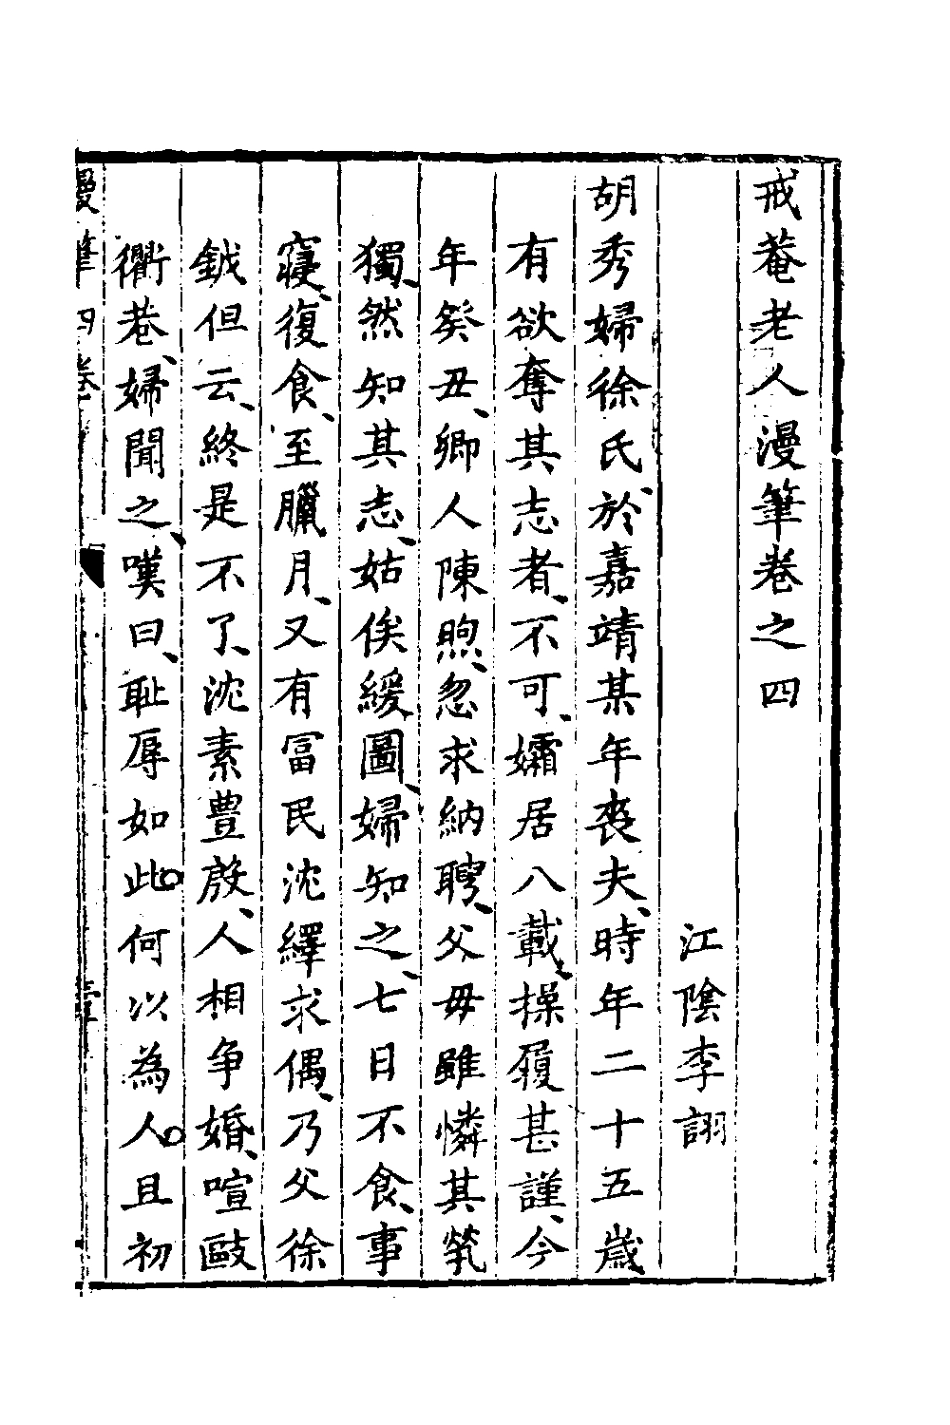 戒菴老人漫筆卷之四
江陰李詡
胡秀婦徐氏於嘉靖某年喪夫、時年二十五歲
有欲奪其志者、不可、孀居八載、操履甚謹、今
年癸丑、鄉人陳煦、忽求納聘、父毋雖憐其煢
獨、然知其志、姑俟緩圖、婦知之、七日不食、事
寢、復食、至臘月、又有冨民沈繹求偶、乃父徐
鉞但云、終是不了、沈素豊殷、人相争婚、喧毆
衢巷、婦聞之、嘆曰、耻辱如此。何以為人。且初
漫筆四卷